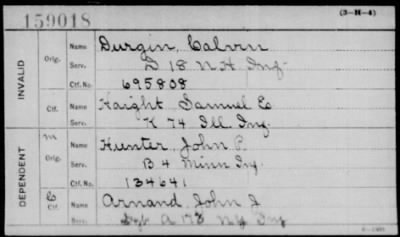 159018
(3-H-4)
INVALID
Orig.
Name Durgin, Calvin
Serv. D 18 N.H. Inf.
Ctf. No. 695808
Ctf.
Name Haight, Samuel E
Serv. K 74 Ill. Inf.
DEPENDENT
m
Orig.
Name Hunter, John P.
Serv. B 4 Minn Inf.
Ctf. No. 134641
C
Ctf.
Name Arnand, John J
Serv. A 173 NY Inf